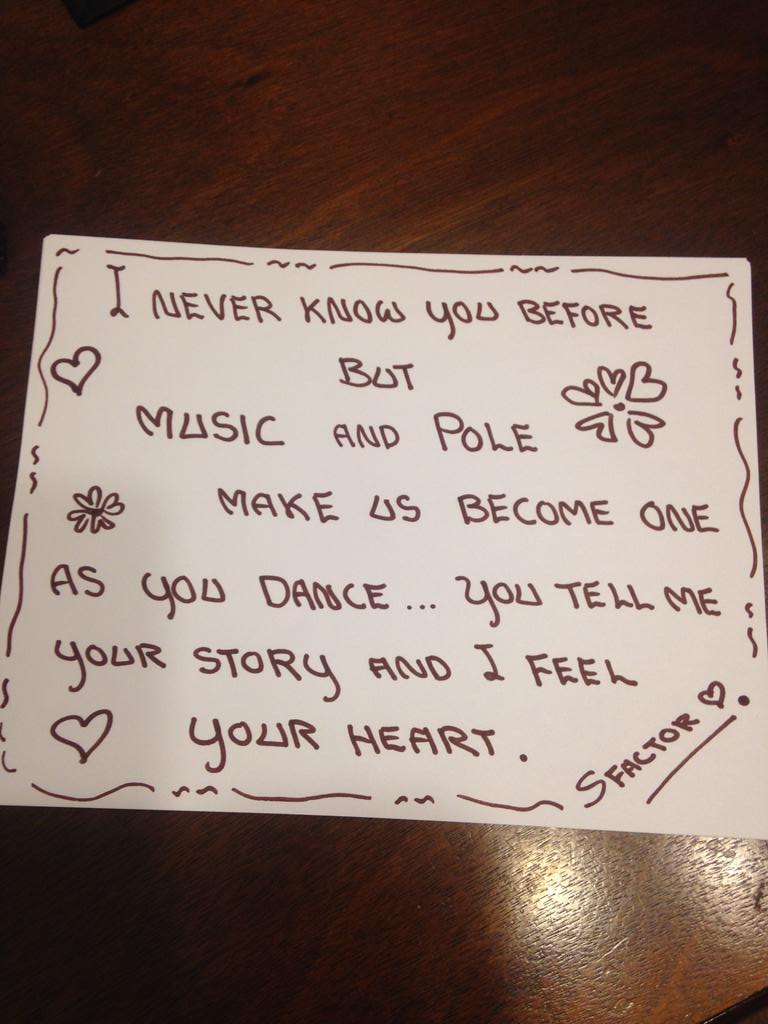 I NEVER KNOW YOU BEFORE
BUT
MUSIC AND POLE
MAKE US BECOME ONE
AS YOU DANCE... YOU TELL ME
YOUR STORY AND I FEEL
YOUR HEART.
SFACTOR